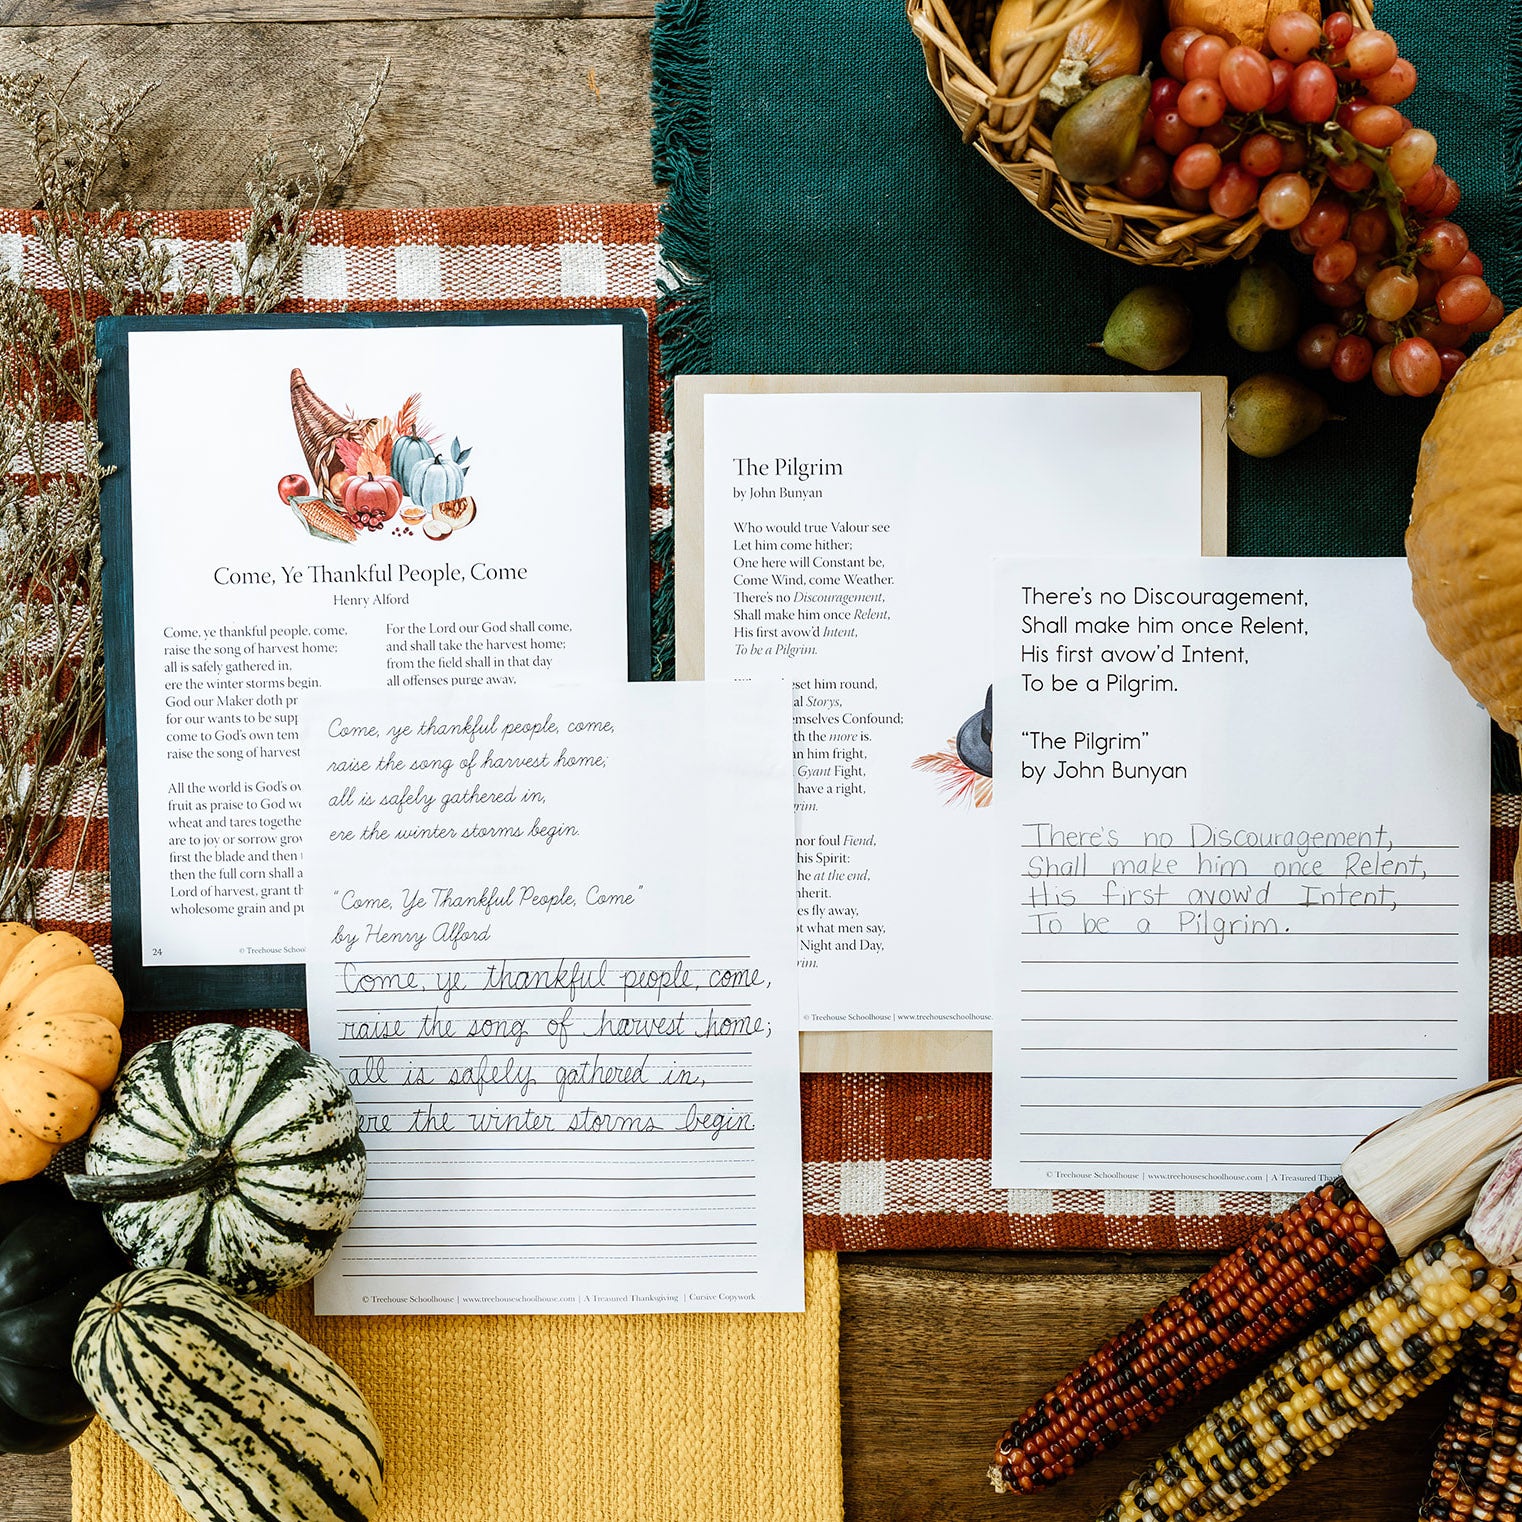 Come, Ye Thankful People, Come
Henry Alford
Come, ye thankful people, come,
raise the song of harvest home;
all is safely gathered in,
ere the winter storms begin.
God our Maker doth
for our wants to be
come to God's own
raise the song of harvest
All the world is God's
fruit as praise to God
wheat and tares
are to joy or sorrow
first the blade and then
then the full corn shall
Lord of harvest, grant
wholesome grain and
For the Lord our God shall come,
and shall take the harvest home;
from the field shall in that day
all offenses purge away,
24
© Treehouse
Come, ye thankful people, come,
raise the song of harvest home;
all is safely gathered in,
ere the winter storms begin.
"Come, Ye Thankful People, Come"
by Henry Alford
Come, ye thankful people, come,
raise the song of harvest home;
all is safely gathered in,
ere the winter storms begin.
© Treehouse Schoolhouse | www.treehouseschoolhouse.com | A Treasured Thanksgiving | Cursive Copywork
The Pilgrim
by John Bunyan
Who would true Valour see
Let him come hither;
One here will Constant be,
Come Wind, come Weather.
There's no Discouragement,
Shall make him once Relent,
His first avow'd Intent,
To be a Pilgrim.
him round,
Storys,
Confound;
the more is.
him fright,
Gyant Fight,
have a right,
nor foul Fiend,
his Spirit:
he at the end,
fly away,
what men say,
Night and Day,
© Treehouse Schoolhouse | www.treehouseschoolhouse.
There's no Discouragement,
Shall make him once Relent,
His first avow'd Intent,
To be a Pilgrim.
"The Pilgrim"
by John Bunyan
There's no Discouragement,
Shall make him once Relent,
His first avow'd Intent,
To be a Pilgrim.
© Treehouse Schoolhouse | www.treehouseschoolhouse.com | A Treasured